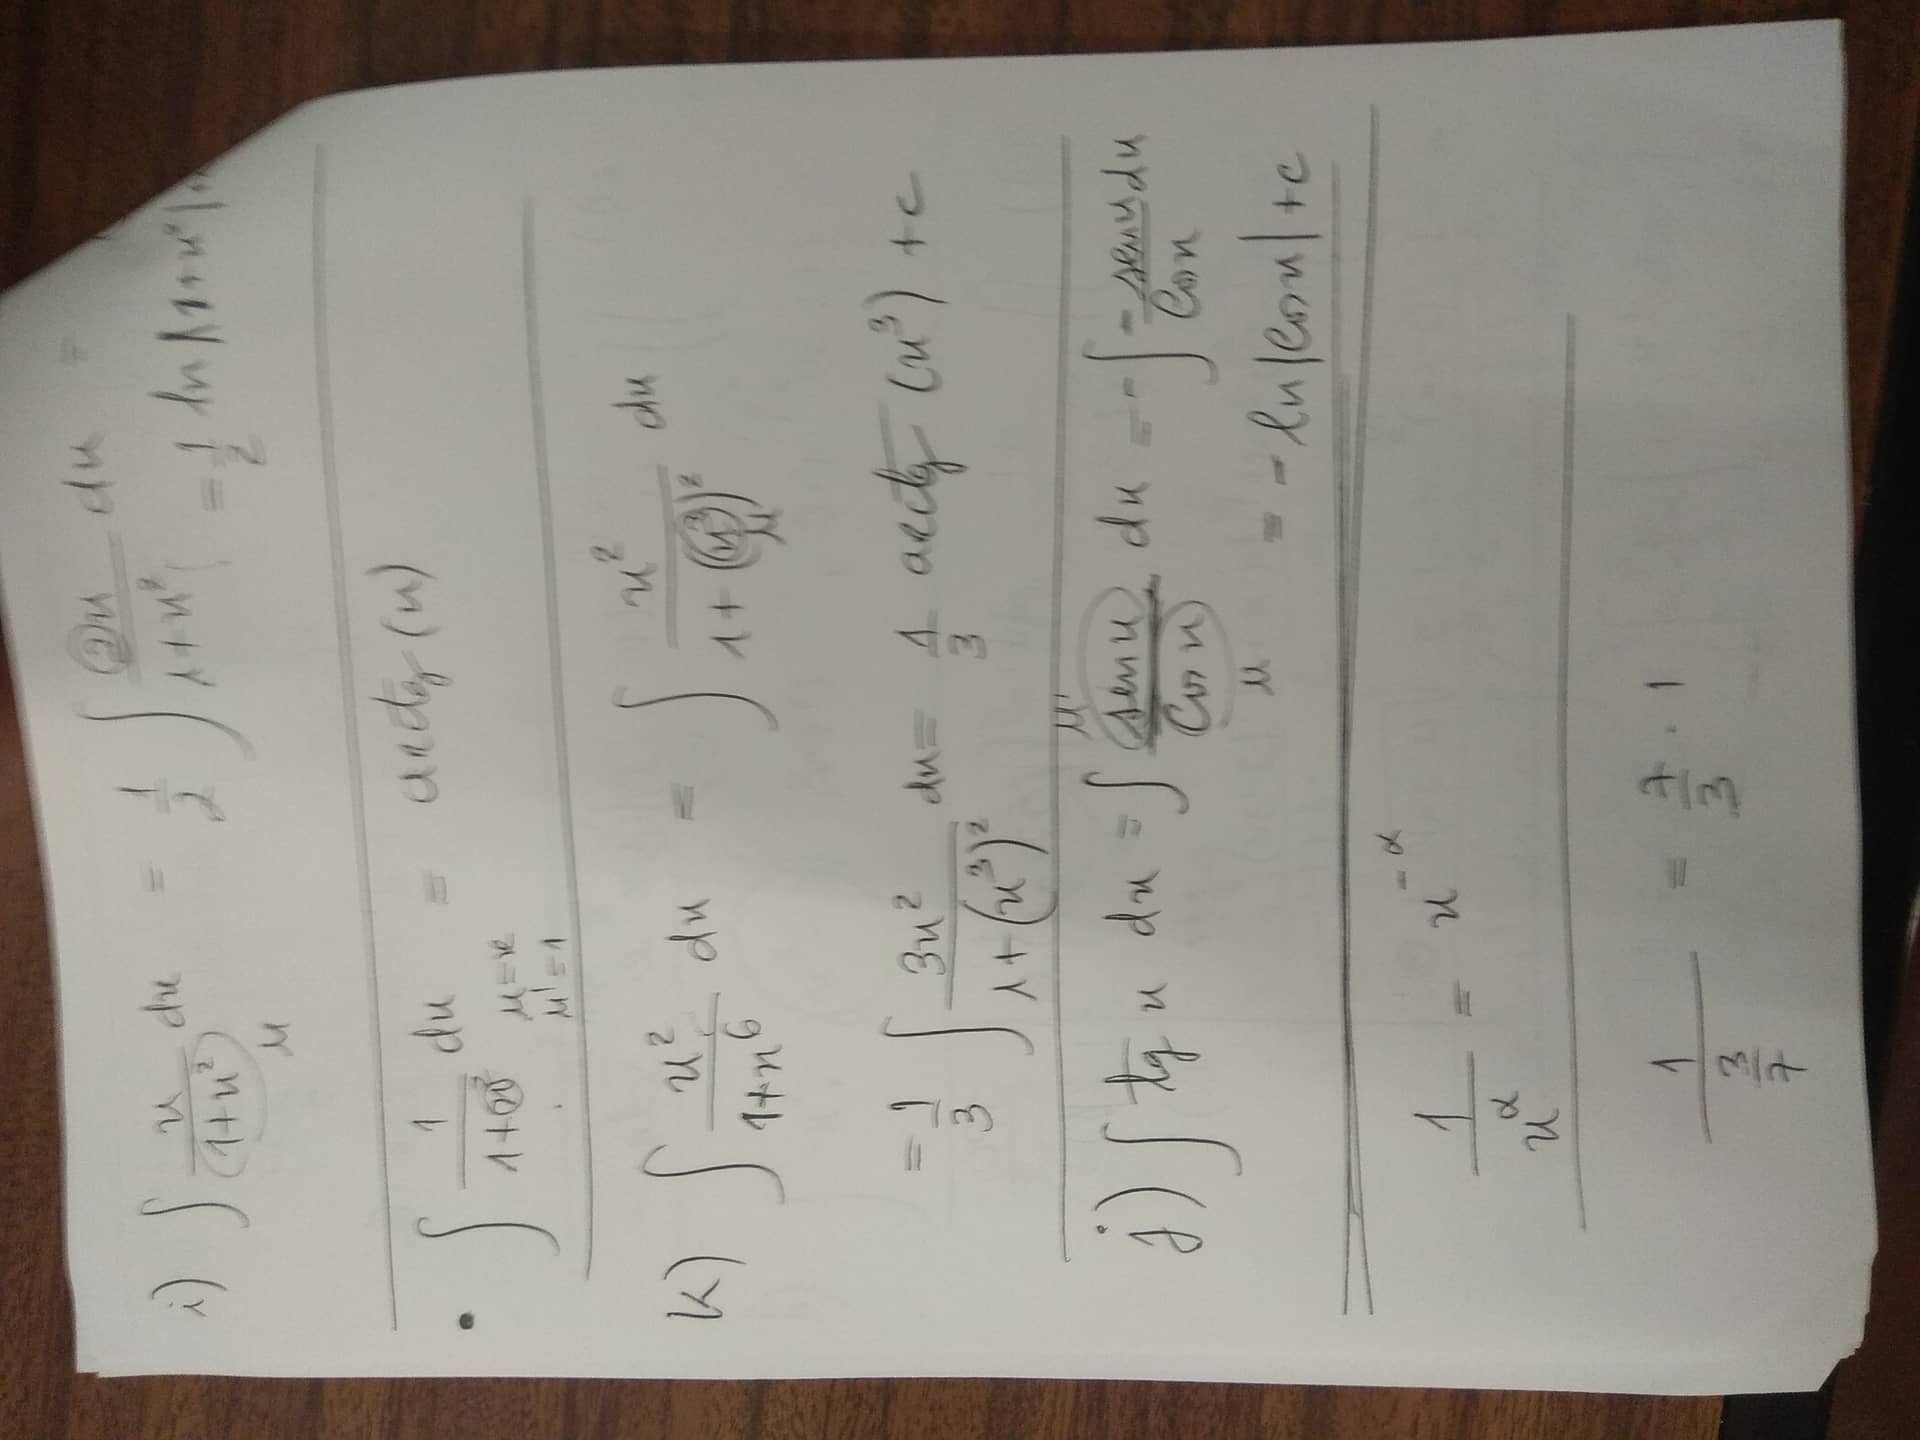 i) ∫ x/(1+x²) dx = 1/2 ∫ 2x/(1+x²) dx =
u
= 1/2 ln |1+x²| +
• ∫ 1/(1+x²) dx = arctg (x)
u = x
u' = 1
k) ∫ x²/(1+x⁶) dx = ∫ x²/(1+(x³)²) dx
u
= 1/3 ∫ 3x²/(1+(x³)²) dx = 1/3 arctg (x³) + c
u'
j) ∫ tg x dx = ∫ sen x/cos x dx = - ∫ - sen x dx/cos x
u
= - ln |cos x| + c
1/x^α = x^-α
1/(3/7) = 7/3 · 1